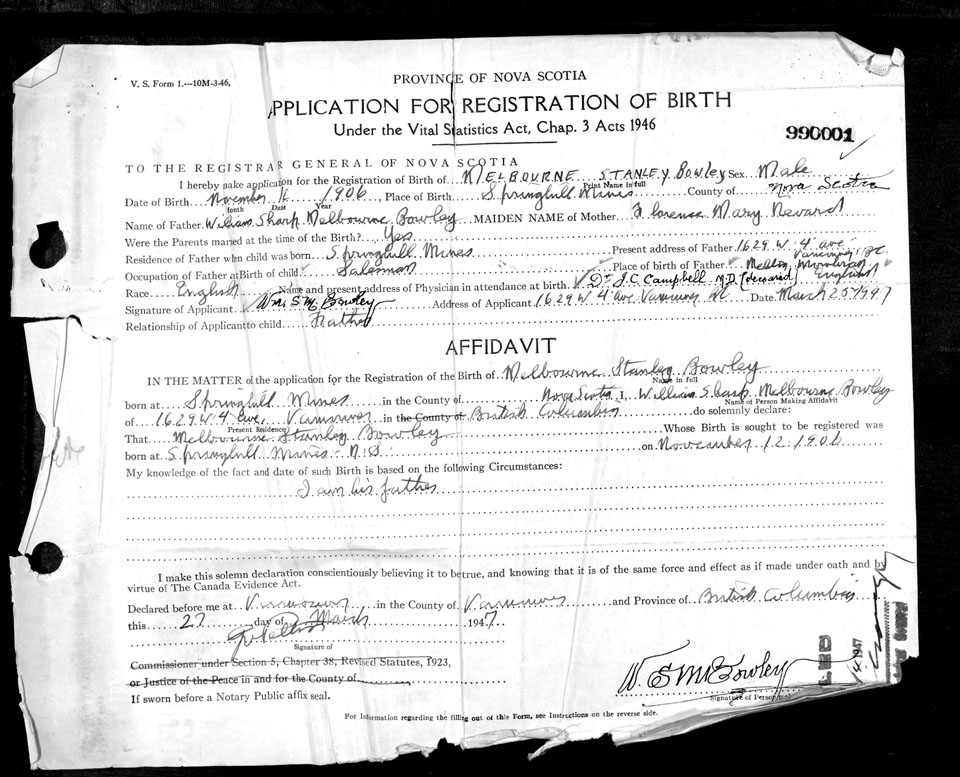 V. S. Form 1.—10M-3-46,
PROVINCE OF NOVA SCOTIA
APPLICATION FOR REGISTRATION OF BIRTH
Under the Vital Statistics Act, Chap. 3 Acts 1946
990001
TO THE REGISTRAR GENERAL OF NOVA SCOTIA
I hereby make application for the Registration of Birth of MELBOURNE STANLEY BOWLEY Sex Male
Print Name in full
Date of Birth November 1906 Place of Birth Springhill Mines County of Nova Scotia
Month Date Year
Name of Father William Sharp Melbourne Bowley MAIDEN NAME of Mother Florence Mary Nevard
Were the Parents married at the time of the Birth? Yes
Residence of Father when child was born Springhill Mines Present address of Father 1629 W 4 ave Vancouver BC
Occupation of Father at Birth of child Salesman Place of birth of Father Melton Mowbray England
Race English Name and present address of Physician in attendance at birth. Dr J.C. Campbell M.D. (deceased)
Signature of Applicant Wm S M Bowley Address of Applicant 1629 W 4 Ave Vancouver BC Date March 25 1947
Relationship of Applicant to child Father
AFFIDAVIT
IN THE MATTER of the application for the Registration of the Birth of Melbourne Stanley Bowley
Name in full
born at Springhill Mines in the County of Nova Scotia I, William Sharp Melbourne Bowley
Name of Person Making Affidavit
of 1629 W 4 Ave, Vancouver in the County of British Columbia do solemnly declare:
Present Residence
That Melbourne Stanley Bowley Whose Birth is sought to be registered was
born at Springhill Mines N.S. on November 12 1906
My knowledge of the fact and date of such Birth is based on the following Circumstances:
I am his father
I make this solemn declaration conscientiously believing it to be true, and knowing that it is of the same force and effect as if made under oath and by
virtue of The Canada Evidence Act.
Declared before me at Vancouver in the County of Vancouver and Province of British Columbia
this 27 day of March 1947
Signature of
Commissioner under Section 5, Chapter 38, Revised Statutes, 1923,
or Justice of the Peace in and for the County of
If sworn before a Notary Public affix seal.
W. S M Bowley
Signature of Person
For Information regarding the filling out of this Form, see Instructions on the reverse side.